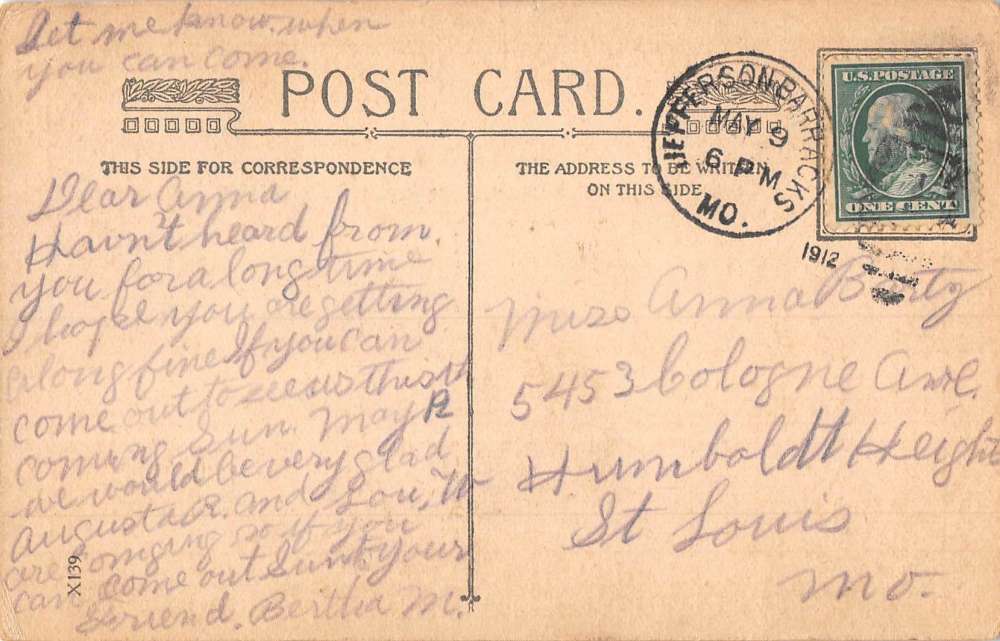 Let me know when
you can come.
POST CARD.
THIS SIDE FOR CORRESPONDENCE
THE ADDRESS TO BE WRITTEN
ON THIS SIDE
JEFFERSON BARRACKS
MAY 9
6 PM
MO.
1912
U.S. POSTAGE
ONE CENT
Dear Anna
Havn't heard from
you for a long time
I hope you are getting
along fine If you can
come out to see us this
coming Sun. May 12
we would be very glad
Augusta R. and Lou, W
are comging so if you
can come out Sun. your
friend. Bertha M.
Miss Anna
5453 Cologne Ave.
Humboldt Height
St Louis
Mo.
X139